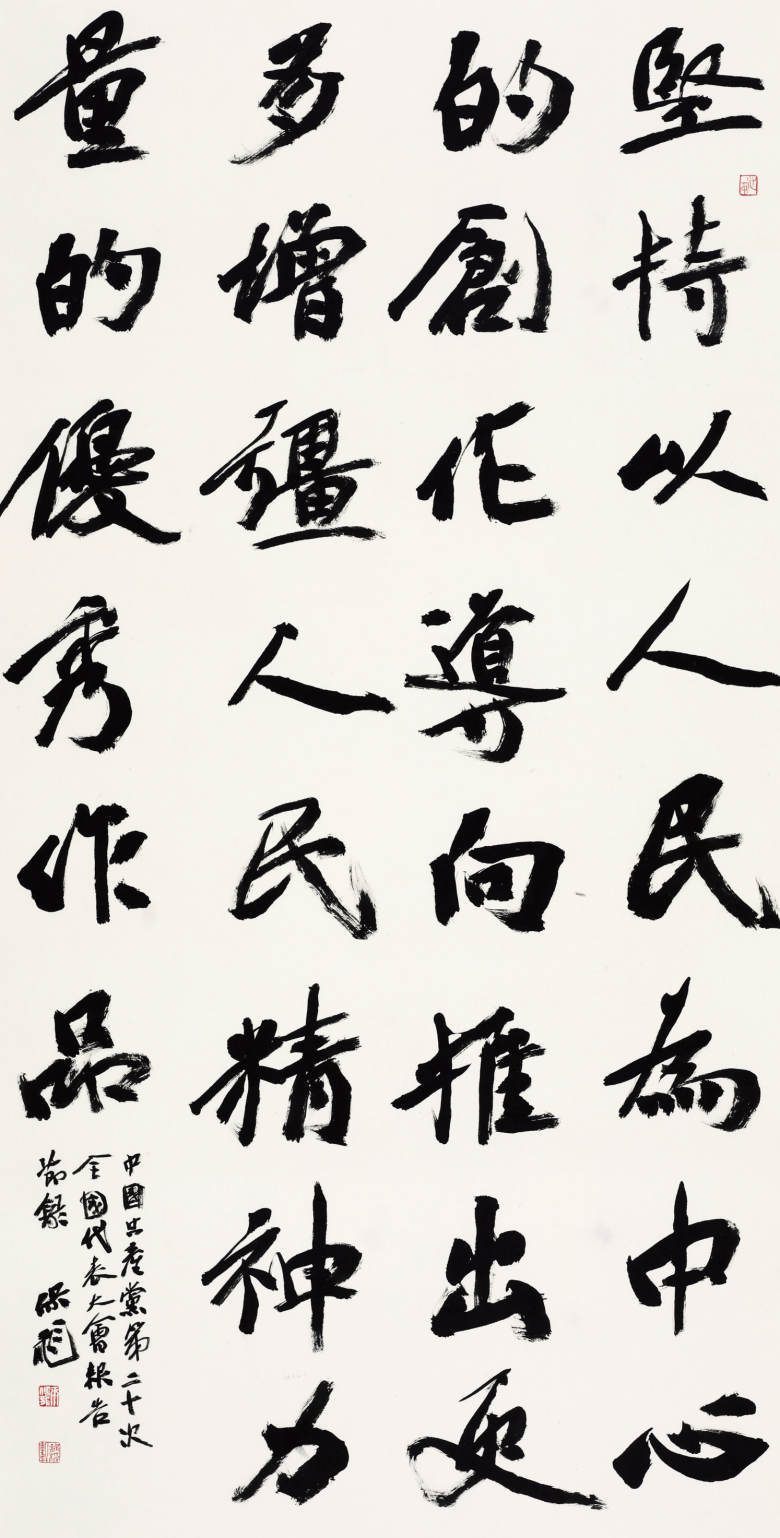 堅持以人民為中心
的創作導向推出更
多增彊人民精神力
量的優秀作品
中國共產黨第二十次
全國代表大會報告
節錄 保